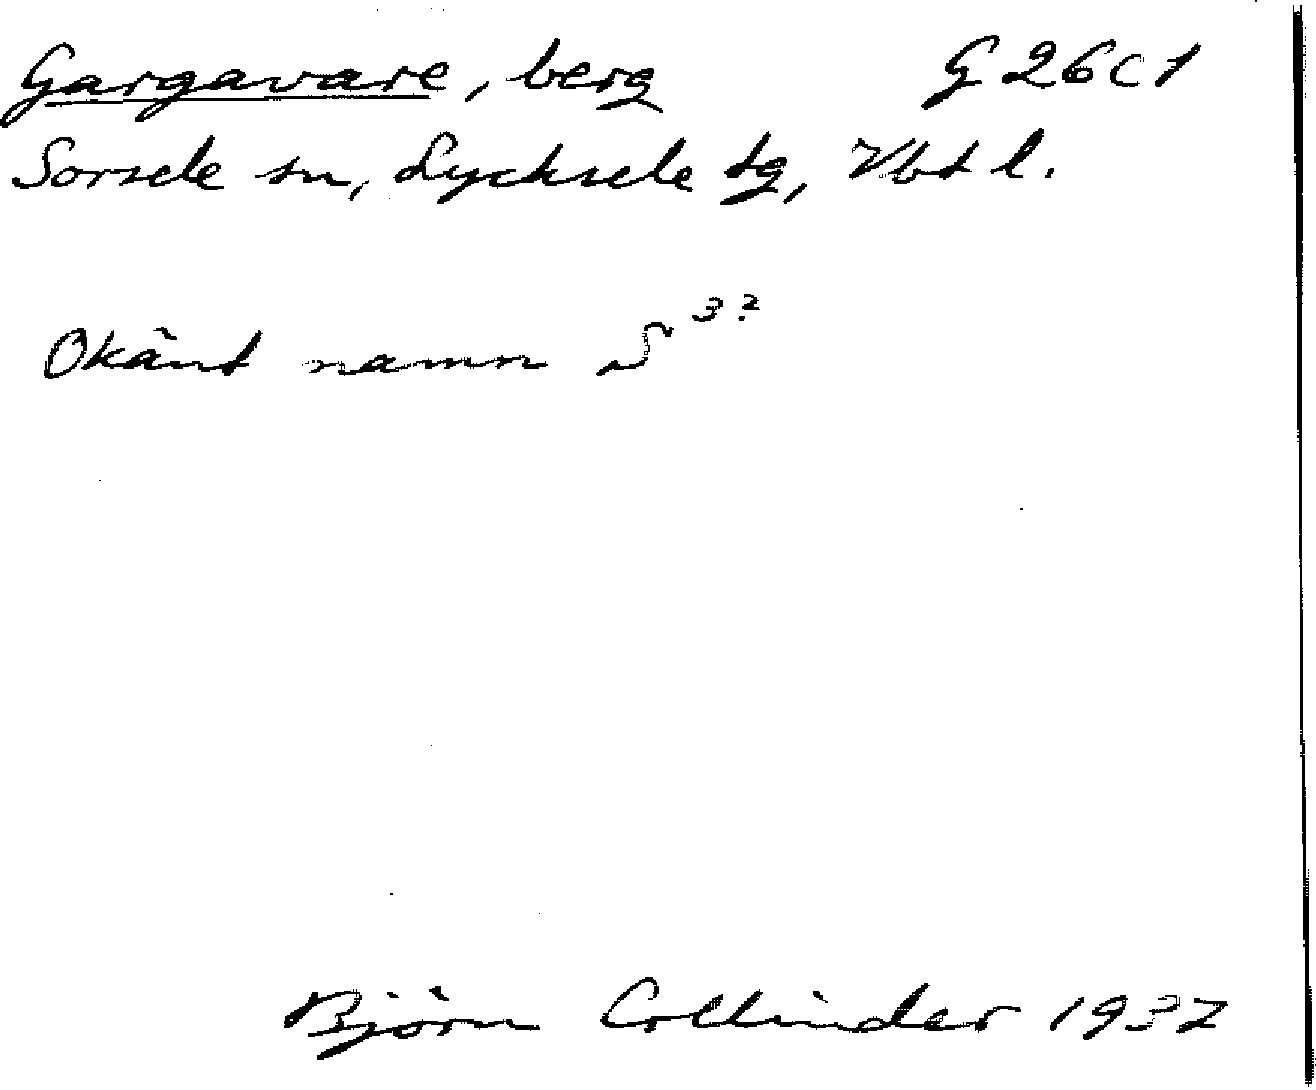 Gargavare, berg G 26 C 1
Sorsele sn, Lycksele tg, Vbt l.
Okänt namn S 32
Björn Collinder 1937